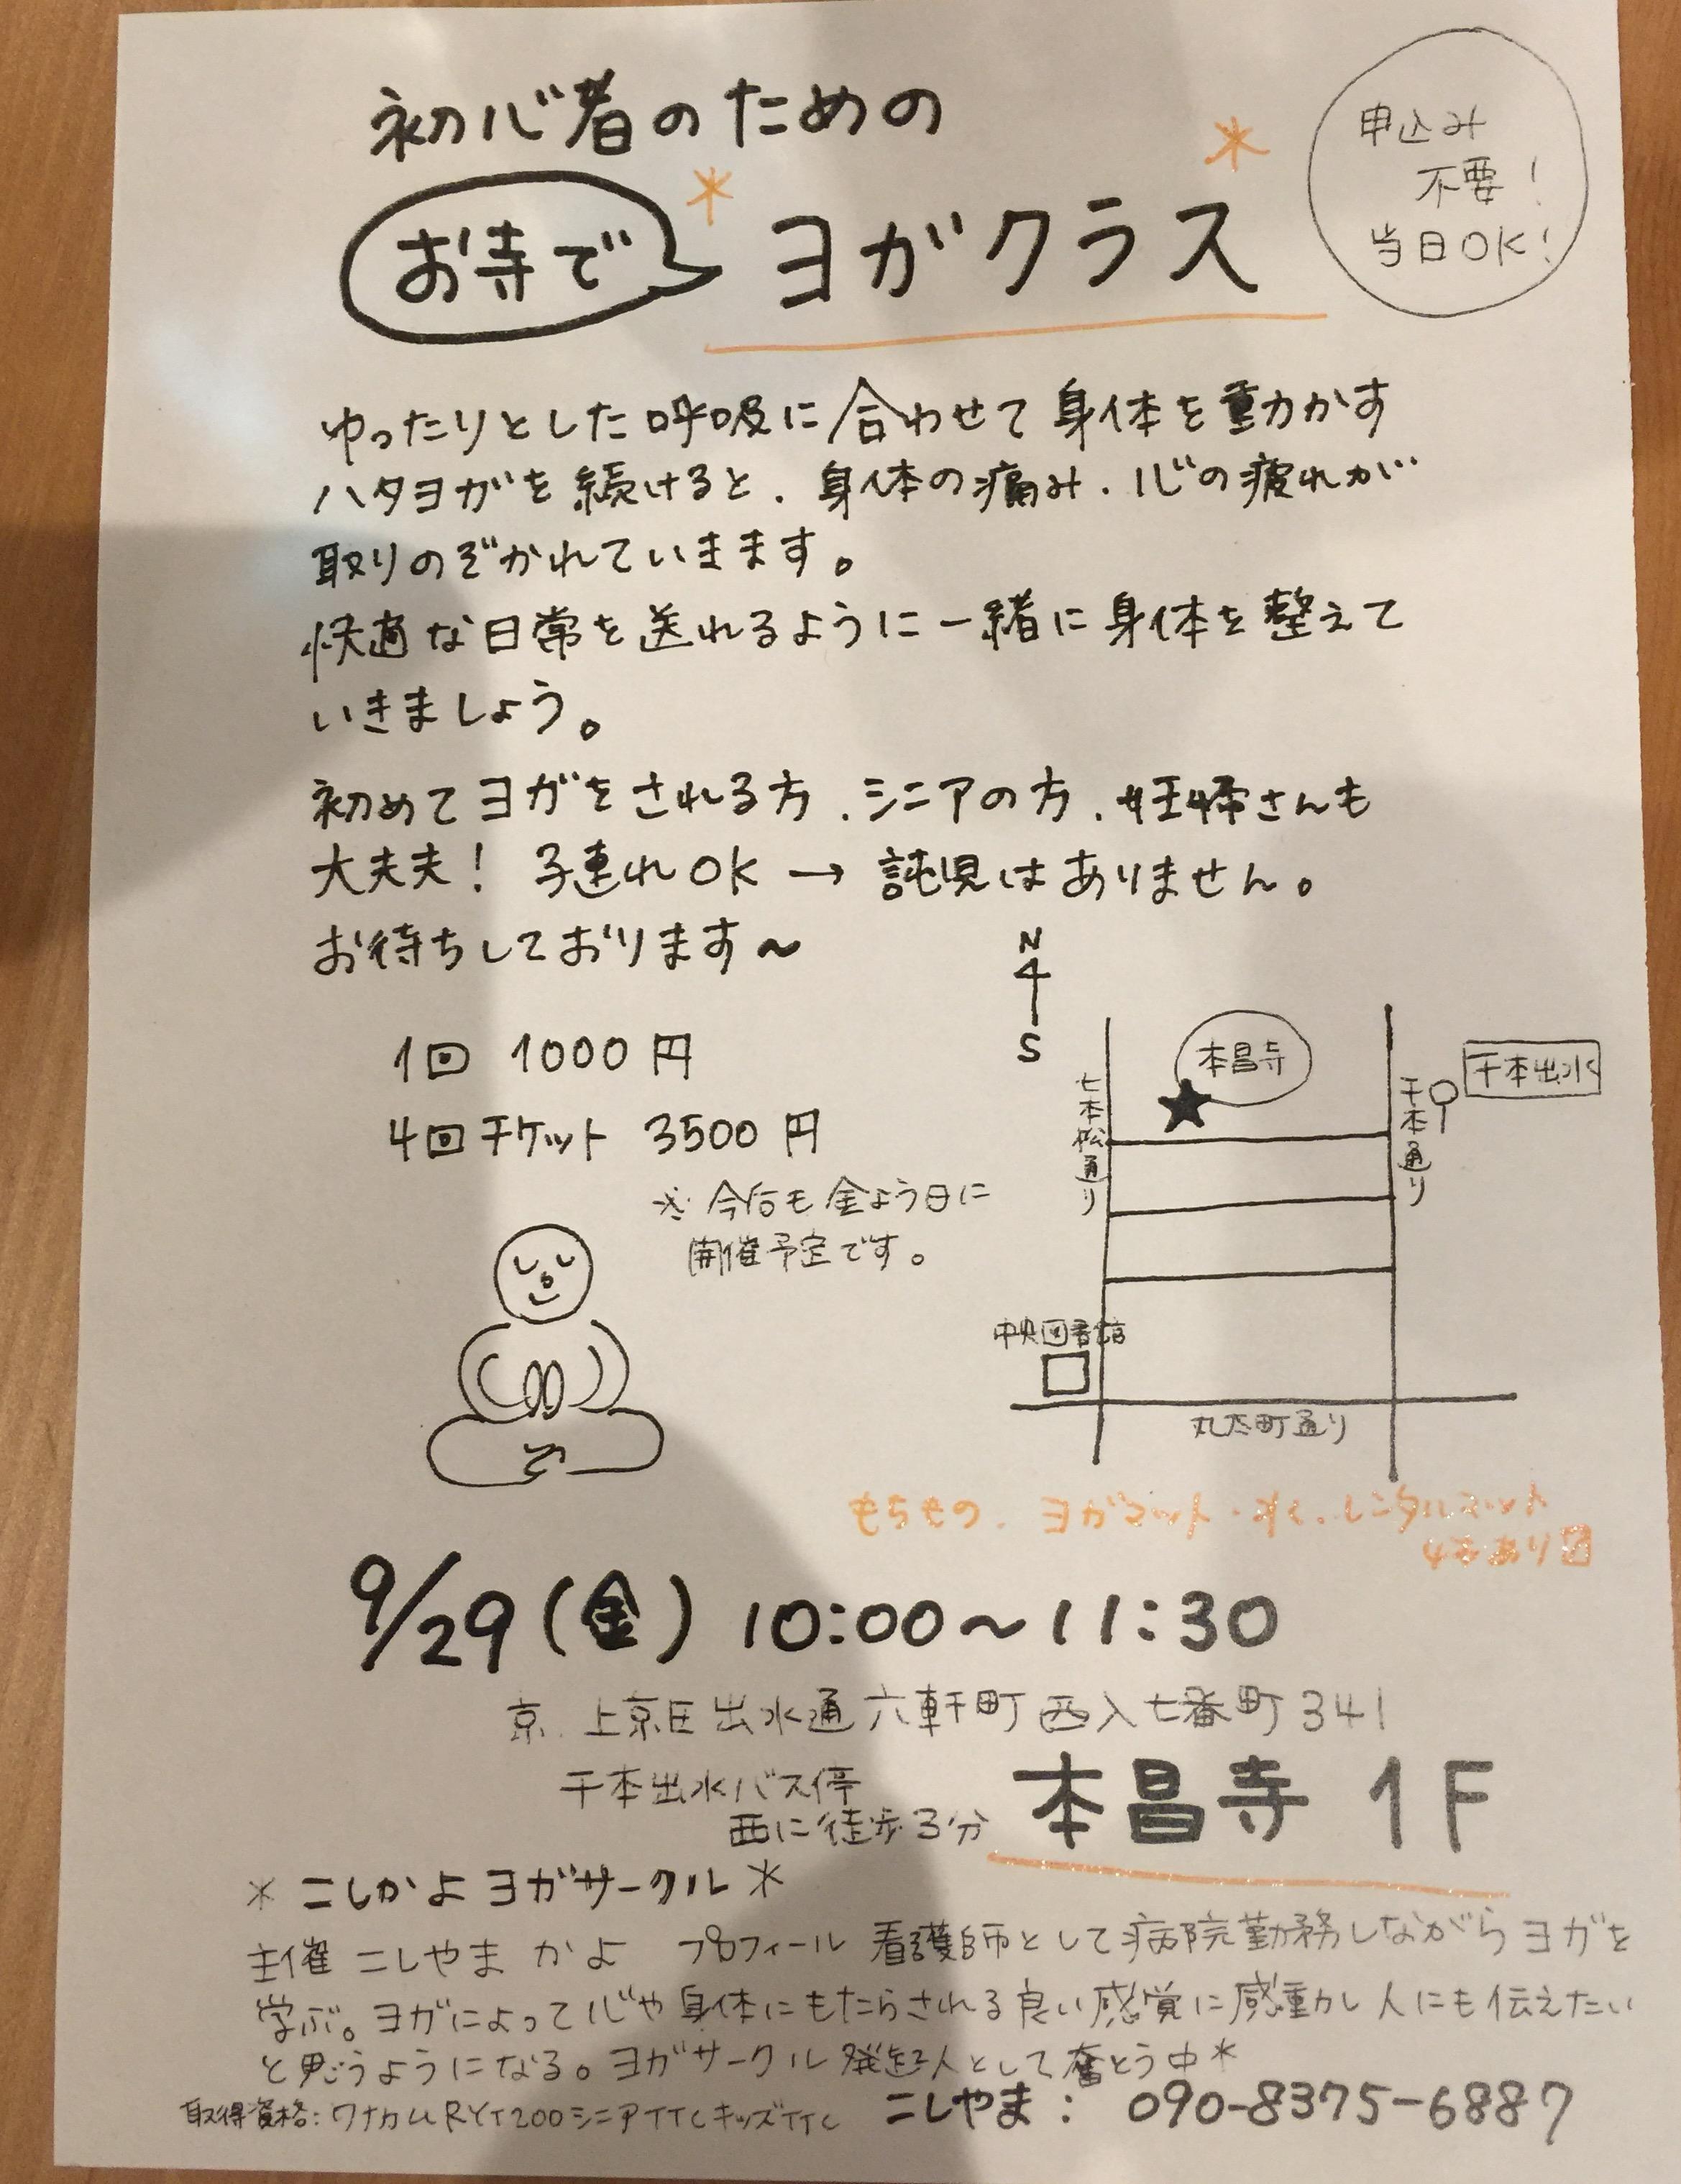 初心者のための
お寺で ヨガクラス
申込み
不要!
当日OK!
ゆったりとした呼吸に合わせて身体を動かす
ハタヨガを続けると、身体の痛み、心の疲れが
取りのぞかれていきます。
快適な日常を送れるように一緒に身体を整えて
いきましょう。
初めてヨガをされる方、シニアの方、妊婦さんも
大丈夫! 子連れOK→託児はありません。
お待ちしております〜
1回 1000円
4回チケット 3500円
※今后も金よう日に
開催予定です。
N
S
本昌寺
千本出水
七本松通り
千本通り
中央図書館
丸太町通り
もちもの、ヨガマット・水、レンタルマット
あり
9/29(金) 10:00〜11:30
京、上京区出水通六軒町西入七番町341
千本出水バス停
西に徒歩3分
本昌寺 1F
*こしかよヨガサークル*
主催 こしやま かよ プロフィール 看護師として病院勤務しながらヨガを
学ぶ。ヨガによって心や身体にもたらされる良い感覚に感動し人にも伝えたい
と思うようになる。ヨガサークル発起人として奮とう中*
取得資格:ワナカムRYT200シニアTTCキッズTTC
こしやま: 090-8375-6887